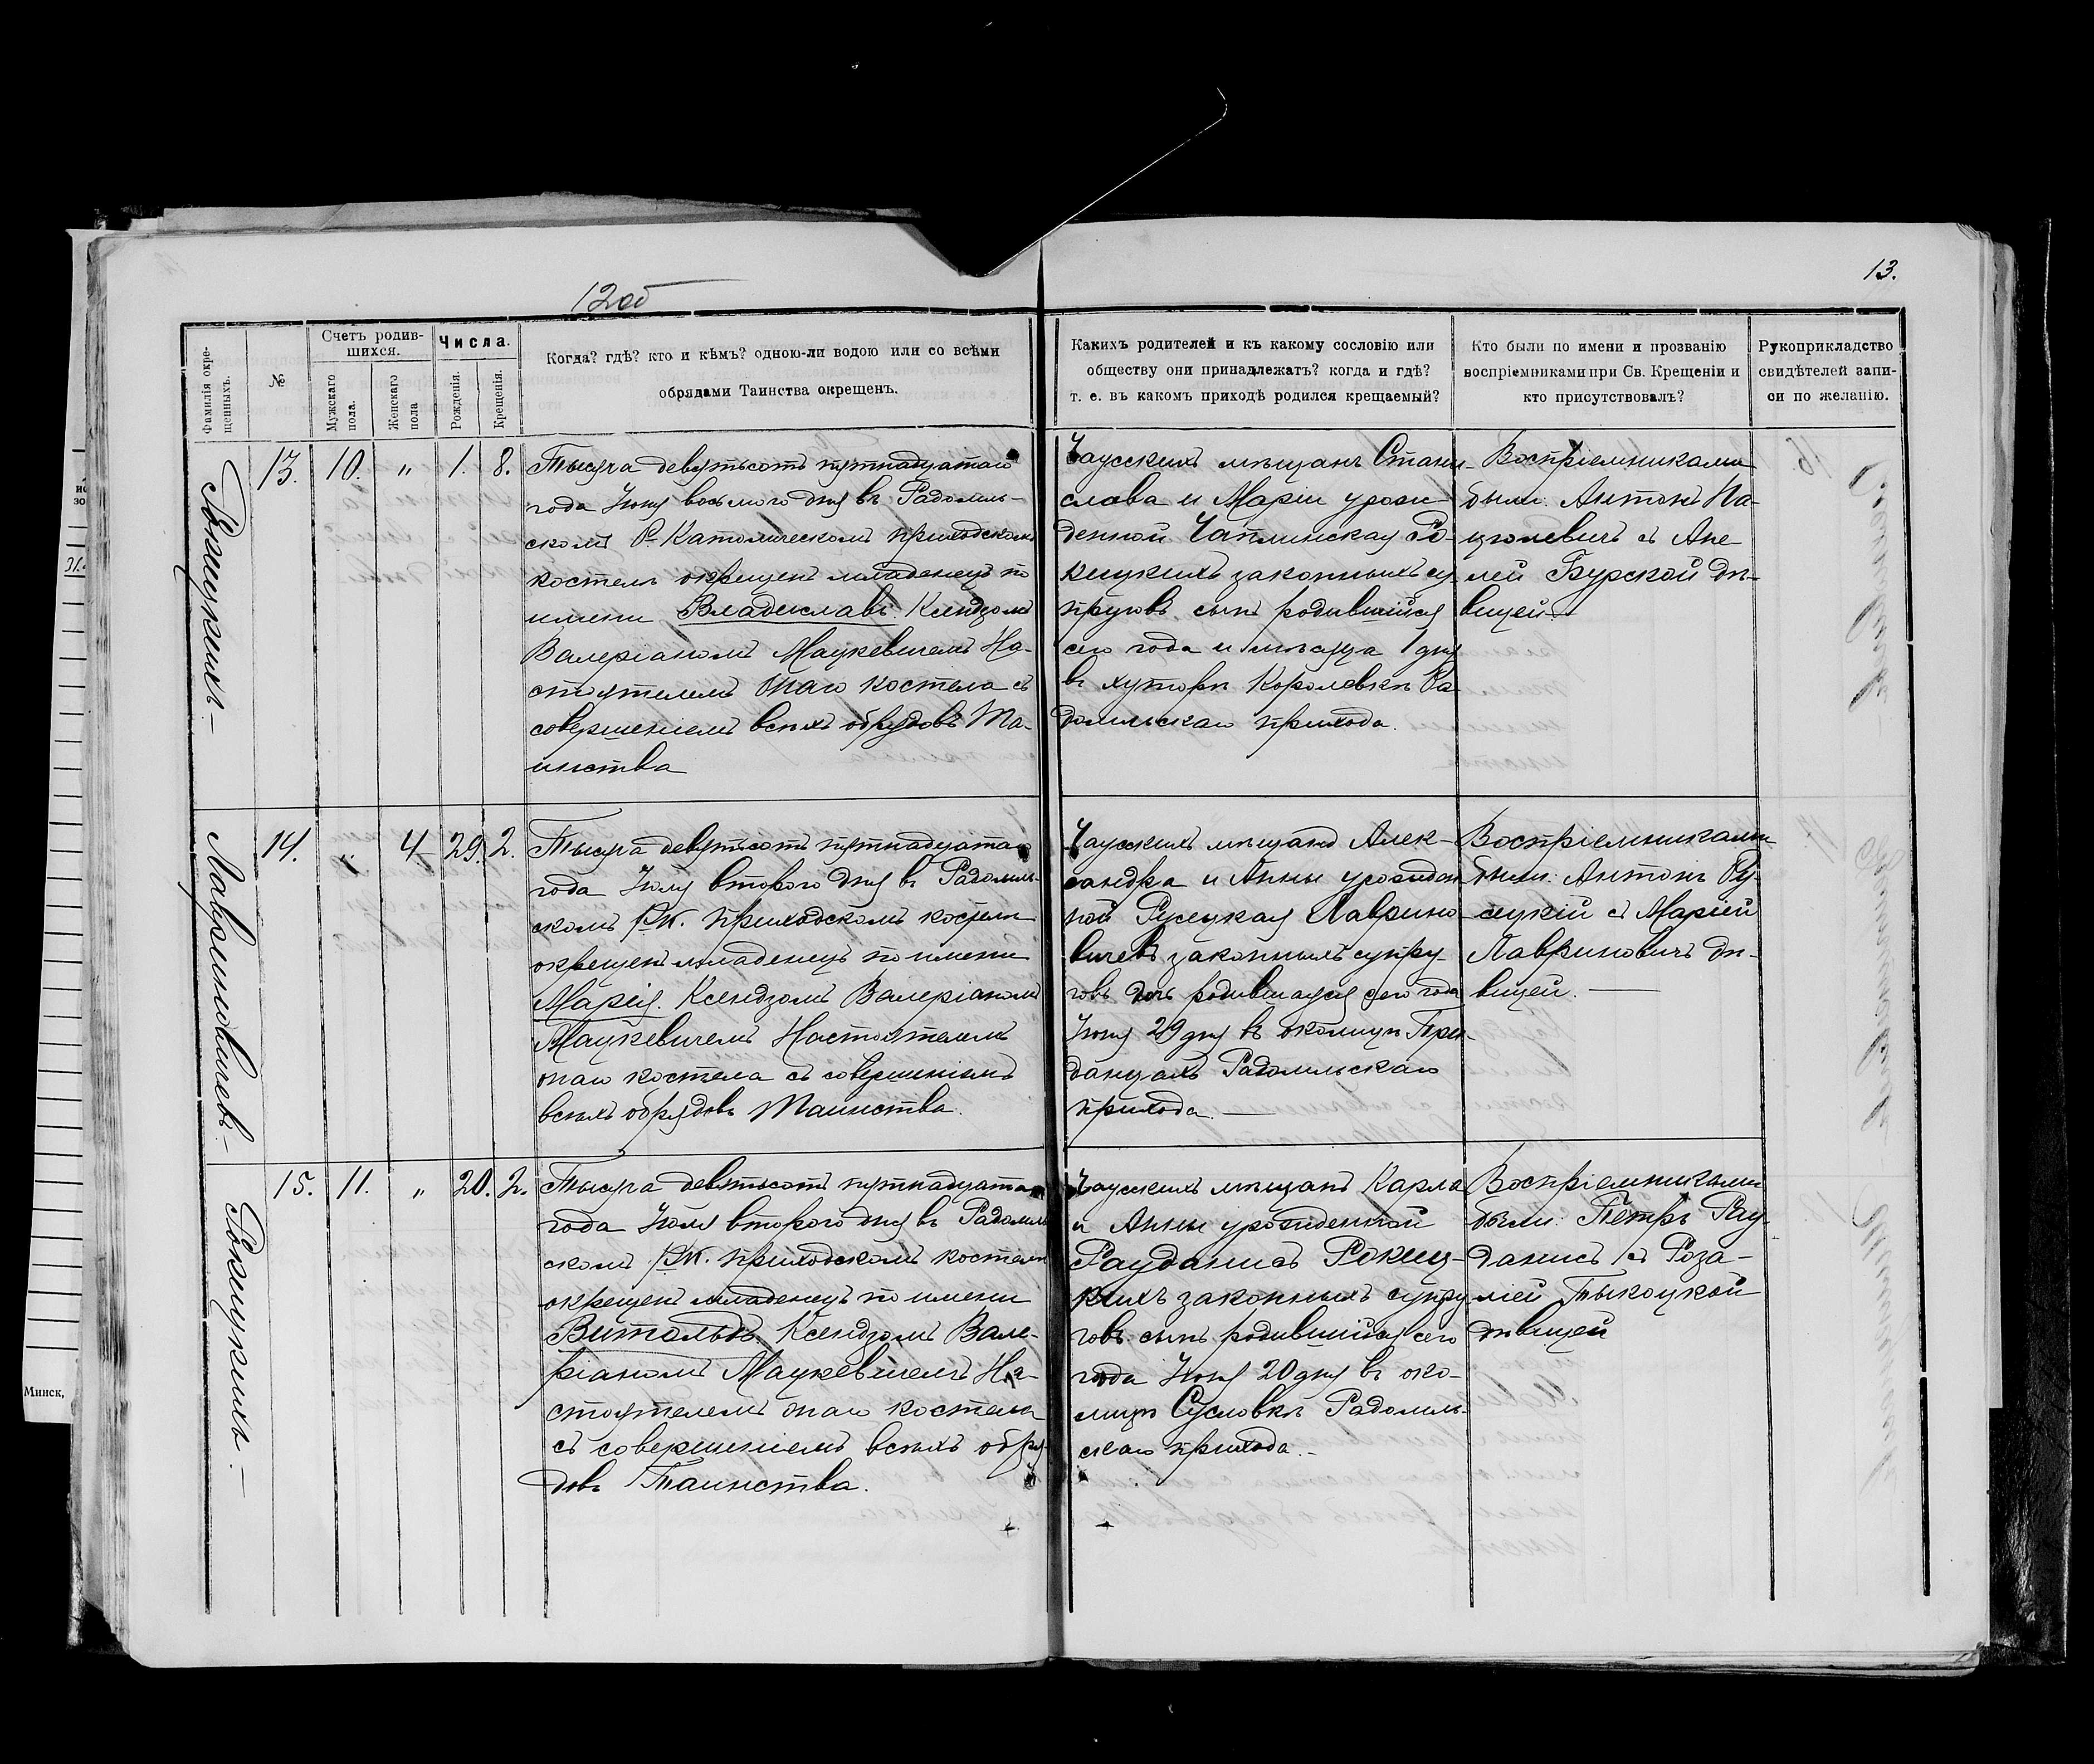 12об
13.
Фамилія окре-
щенныхъ.
№
Счетъ родив-
шихся.
Мужскаго
пола.
Женскаго
пола
Числа.
Рожденія.
Крещенія.
Когда? гдѣ? кто и кѣмъ? одною-ли водою или со всѣми
обрядами Таинства окрещенъ.
Какихъ родителей и къ какому сословію или
обществу они принадлежатъ? когда и гдѣ?
т. е. въ какомъ приходѣ родился крещаемый?
Кто были по имени и прозванію
воспріемниками при Св. Крещеніи и
кто присутствовалъ?
Рукоприкладство
свидѣтелей запи-
си по желанію.
Рокицкихъ-
13. 10. " 1. 8.
Тысяча девятьсотъ пятнадцатаго
года Іюня восьмого дня въ Радомль-
скомъ Р. Католическомъ приходскомъ
костелѣ окрещенъ младенецъ по
имени Владиславъ. Ксендзомъ
Валеріаномъ Мацкевичемъ На-
стоятелемъ онаго костела съ
совершеніемъ всѣхъ обрядовъ Та-
инства
Чаусскихъ мѣщанъ Стани-
слава и Маріи урож-
денной Чаплинская Ро-
кицкихъ законныхъ су-
пруговъ сынъ родившійся
сего года и мѣсяца 1 дня
въ хуторѣ Королевкѣ Ра-
домльскаго прихода.
Воспріемниками
были: Антонъ Па-
цюлевичъ съ Апе
леей Бурской дѣ-
вицей.-
Лавриновичевъ-
14. " 4 29. 2.
Тысяча девятьсотъ пятнадцатаго
года Іюля второго дня въ Радомль-
скомъ Р.К. приходскомъ костелѣ
окрещенъ младенецъ по имени
Марія. Ксендзомъ Валеріаномъ
Мацкевичемъ Настоятелемъ
онаго костела съ совершеніемъ
всѣхъ обрядовъ Таинства.
Чаусскихъ мѣщанъ Алек-
сандра и Анны урожден
ной Русецкая Лаврино-
вичевъ законныхъ супру-
говъ дочь родившаяся сего года
Іюня 29 дня въ околицѣ
Радомльскаго
прихода.-
Воспріемниками
были: Антонъ Ру-
сецкій съ Маріей
Лавриновичъ дѣ-
вицей.-
Рокицкихъ.-
15. 11. " 20. 2.
Тысяча девятьсотъ пятнадцатаго
года Іюля второго дня въ Радомль
скомъ Р.К. приходскомъ костелѣ
окрещенъ младенецъ по имени
Витольдъ. Ксендзомъ Вале-
ріаномъ Мацкевичемъ На-
стоятелемъ онаго костела
съ совершеніемъ всѣхъ обря-
довъ Таинства.
Чаусскихъ мѣщанъ Карла
и Анны урожденной
Рауданисъ Рокиц-
кихъ законныхъ супру
говъ сынъ родившійся сего
года Іюня 20 дня въ око-
лицѣ Сусловкѣ Радомль-
скаго прихода.-
Воспріемниками
были: Петръ Рау-
данисъ съ Роза-
ліей Тыкоцкой
дѣвицей
Минск,